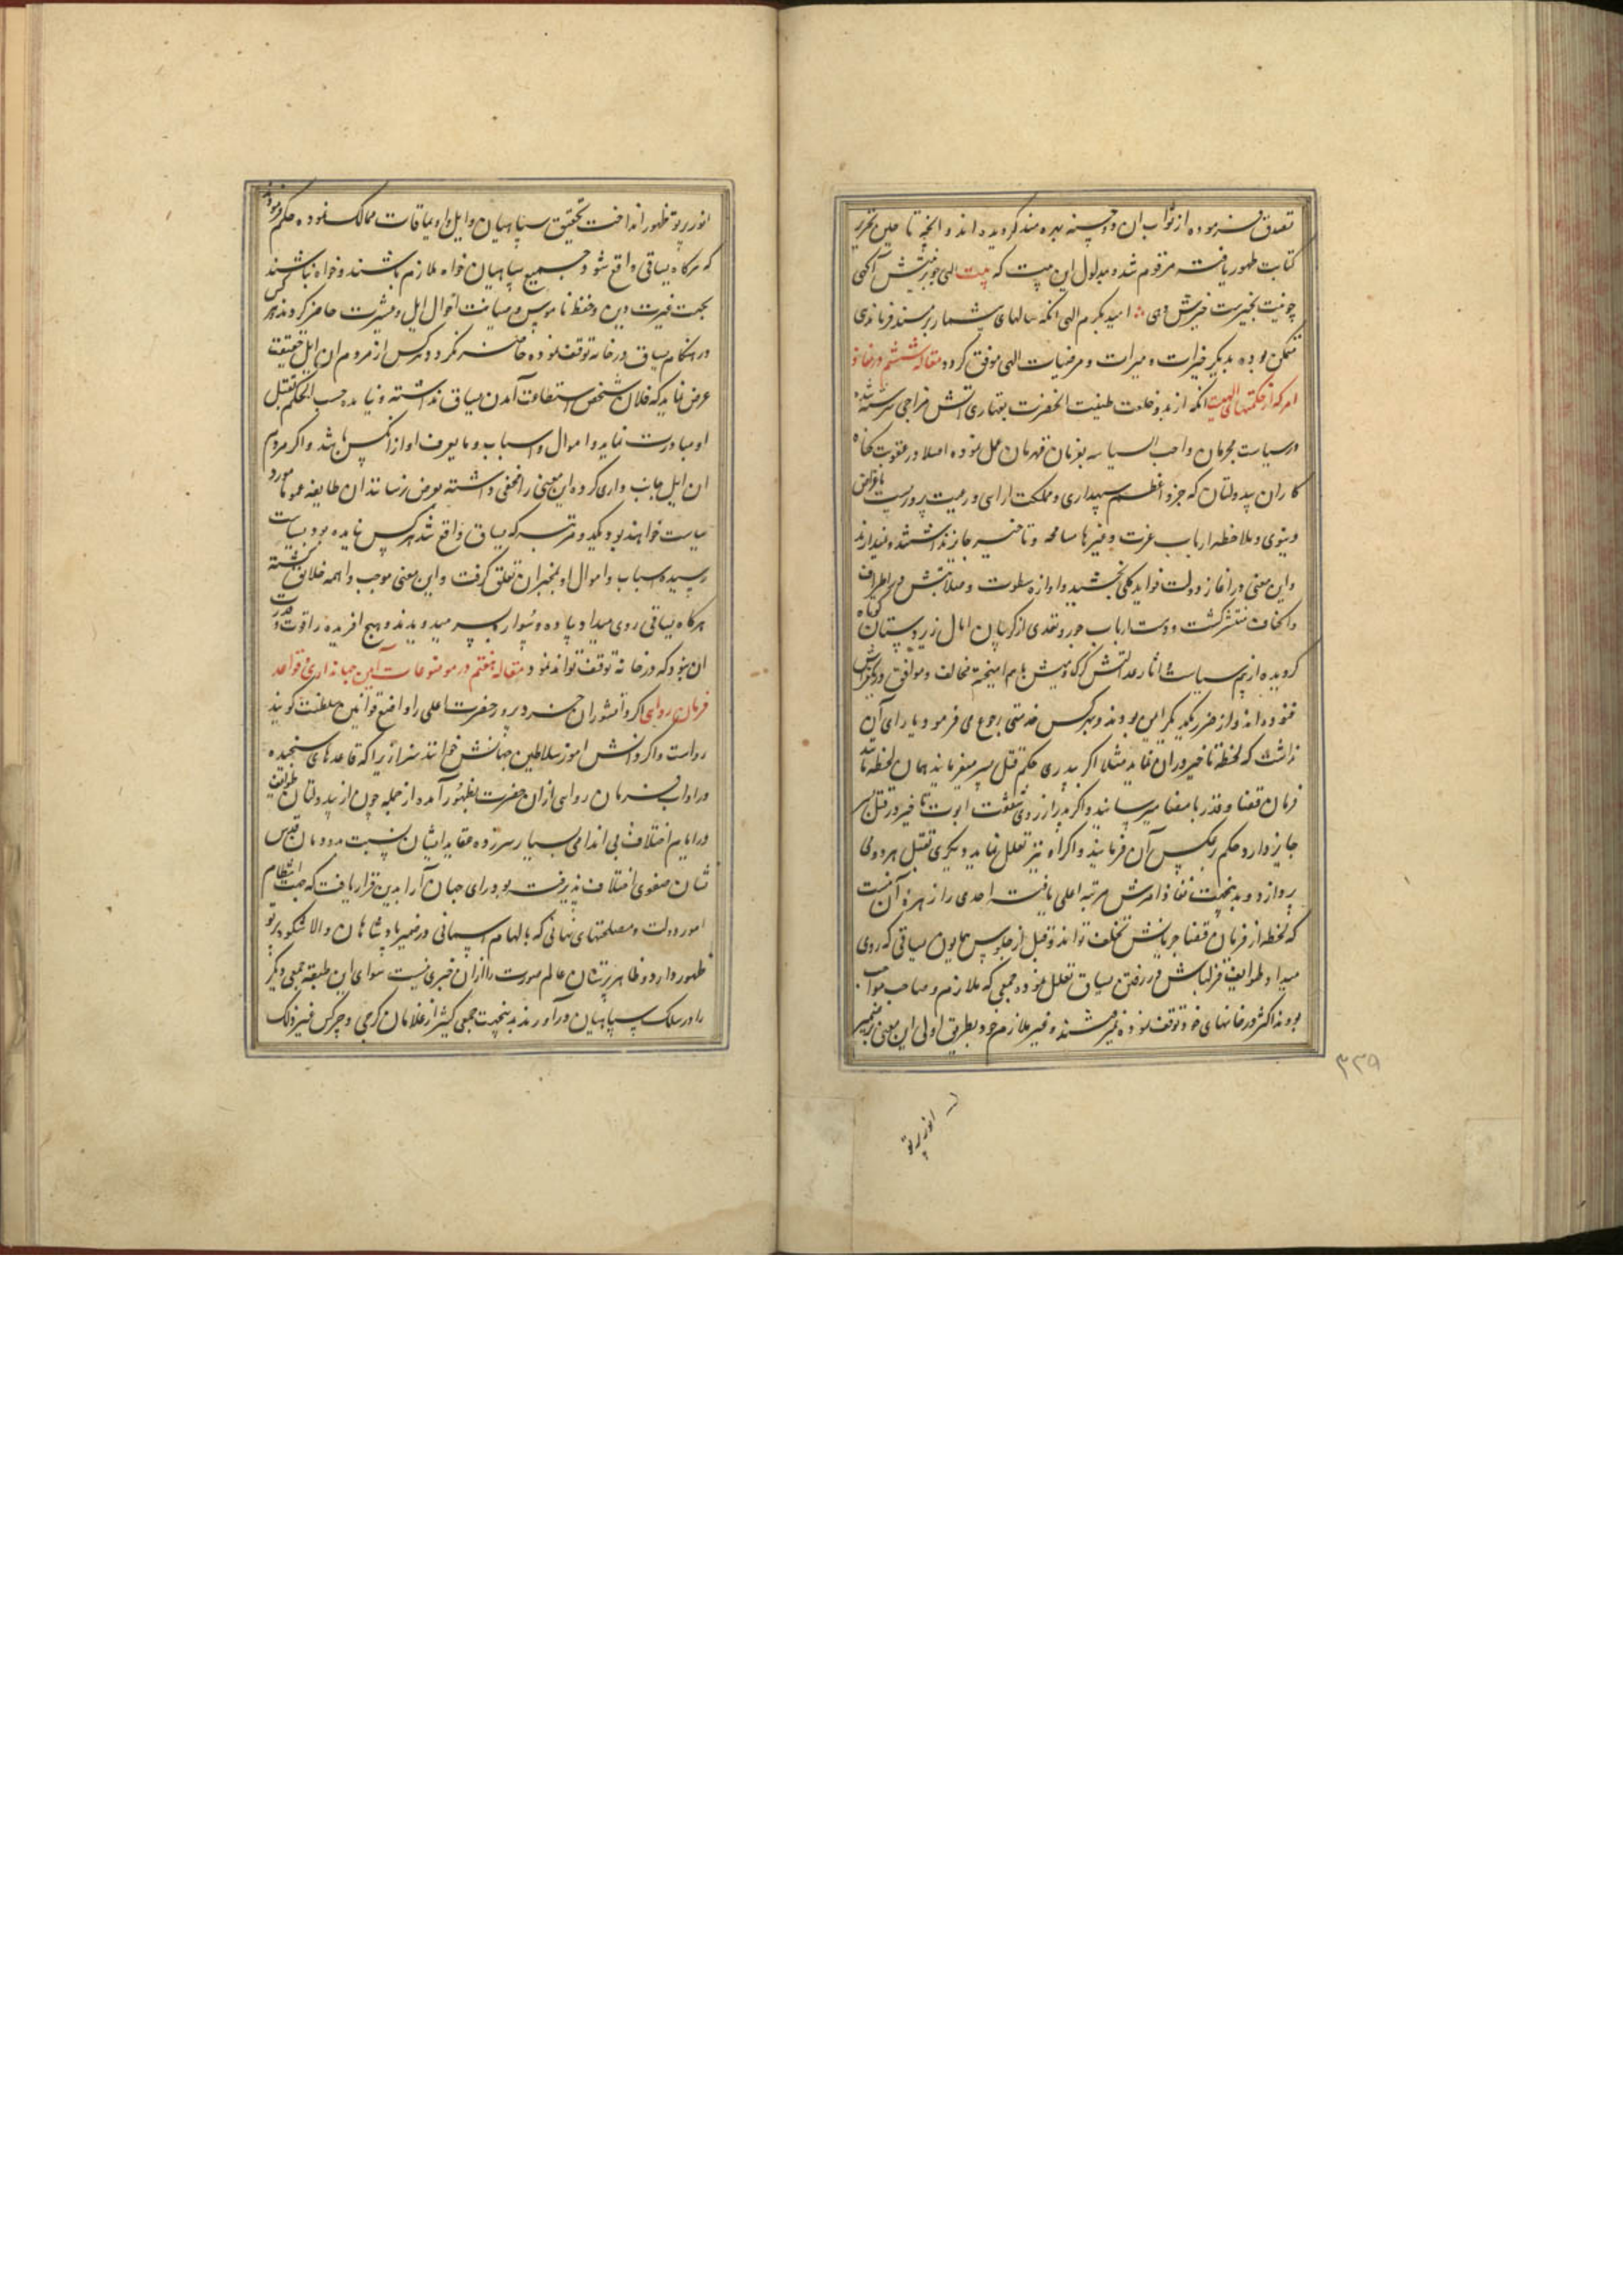 تصدق فرموده از ثواب آن و حسنه بهره مند گردیده اند و آنچه تا حین تحریر
کتابت ظهور یافته مرقوم شد و مدلول این بیت که بیت الهی چو بر نیتش آگهی
چو نیت بخیرست خیرش دهی امید بکرم الهی آنکه سالهای بیشمار بر مسند فرماندهی
متمکن بوده بدیگر خیرات و مبرات و مرضیات الهی موفق گردد مقاله ششم در نفاذ
امر که از حکمتهای الهیست آنکه از بدو خلعت طینت آنحضرت بقهاری آتش مزاجی سرشته شده
در سیاست مجرمان واجب السیاسه بفرمان قهرمان عمل نموده اصلا در عقوبت گناه
کاران بیدولتان که جزو اعظم سپهداری و مملکت آرایی و رعیت پروریست باغراض
دنیوی و ملاحظه ارباب عزت و غیرها مسامحه و تاخیر جایز نداشتند و نمیدارند
و این معنی در آغاز دولت فواید کلی بخشید و آوازه سطوت و صلابتش در اطراف
و اکناف منتشر گشت و دست ارباب جور و تعدی از گریبان امال زیردستان کوتاه
گردیده از بیم سیاست و آثار عدالتش گرگ و میش با هم آمیخته مخالف و موافق در یک فراش
غنوده اند و از ضرر یکدیگر ایمن بودند و بهر کس خدمتی رجوع می فرمود یارای آن
نداشت که لحظه تاخیر در آن نماید مثلا اگر پدری حکم قتل پسر میفرمایند همان لحظه مانند
فرمان قضا و قدر بامضا میرسانید و اگر پدر از روی شفقت ابوت تاخیر در قتل پسر
جایز دارد حکم بر عکس آن فرمایند و اگر او نیز تعلل نماید دیگری بقتل هر دو می
پردازد و بدینجهت نفاذ امرش مرتبه اعلی یافته احدی را زهره آن نیست
که لحظه از فرمان قضا جریانش تخلف تواند و قبل از جلوس همایون یساقی که روی
میداد طوایف قزلباش در رفتن یساق تعلل نموده جمعی که ملازم و صاحب مواجب
بودند اکثر در خانهای خود توقف نموده نمیرفتند و غیر ملازم خود بطریق اولی این معنی بر ضمیر
انور پرتو
۳۳۹
انور پرتو ظهور انداخت تحقیق سپاهیان و ایل و اویماقات ممالک نموده حکم فرمودند
که هرگاه یساقی واقع شود جمیع سپاهیان خواه ملازم باشند و خواه نباشند
بجهت غیرت دین و حفظ ناموس و صیانت احوال ایل و عشیرت حاضر گردند هر کس
در هنگام یساق در خانه توقف نموده حاضر نگردد و هر کس از مردم آن ایل حقیقت
عرض نماید که فلان شخص استطاعت آمدن یساق نداشته و نیامده حسب الحکم بقتل
او مبادرت نماید و اموال و اسباب و ما یعرف او از آنکس باشد و اگر مردم
آن ایل جانب داری کرده این معنی را مخفی داشته بعرض نرسانند آن طایفه عموما مورد
سیاست خواهند بود و یکدو مرتبه که یساق واقع شد هر کس نیامده بود بسیاست
رسیده اسباب و اموال او بمخبران تعلق گرفت و این معنی موجب واهمه خلایق گشته
هرگاه یساقی روی میداد پیاده و سوار بسر میدویدند و هیچ آفریده را قوت و قدرت
آن نبود که در خانه توقف تواند نمود مقاله هفتم در موضوعات آیین جهانداری و قواعد
فرمان روایی اگر دانشوران خرد پرور حضرت اعلی را واضع قوانین سلطنت گویند
رواست و اگر دانش آموز سلاطین جهانش خوانند سزا زیرا که قاعدهای سنجیده
در آداب فرمان روایی از آن حضرت بظهور آمده از جمله چون از بیدولتان طوایف
در ایام اختلاف بی اندامی بسیار سرزده عقاید ایشان نسبت بدودمان قدس
نشان صفوی اختلاف پذیرفته بود رای جهان آرا بدین قرار یافت که جهت انتظام
امور دولت و مصلحتهای نهانی که بالهام آسمانی در ضمیر پادشاهان والا شکوه پرتو
ظهور دارد و ظاهر پرستان عالم صورت را از آن خبری نیست سوای این طبقه جمعی دیگر
را در سلک سپاهیان درآورند بدینجهت جمعی کثیر از غلامان گرجی و چرکس و غیر ذلک